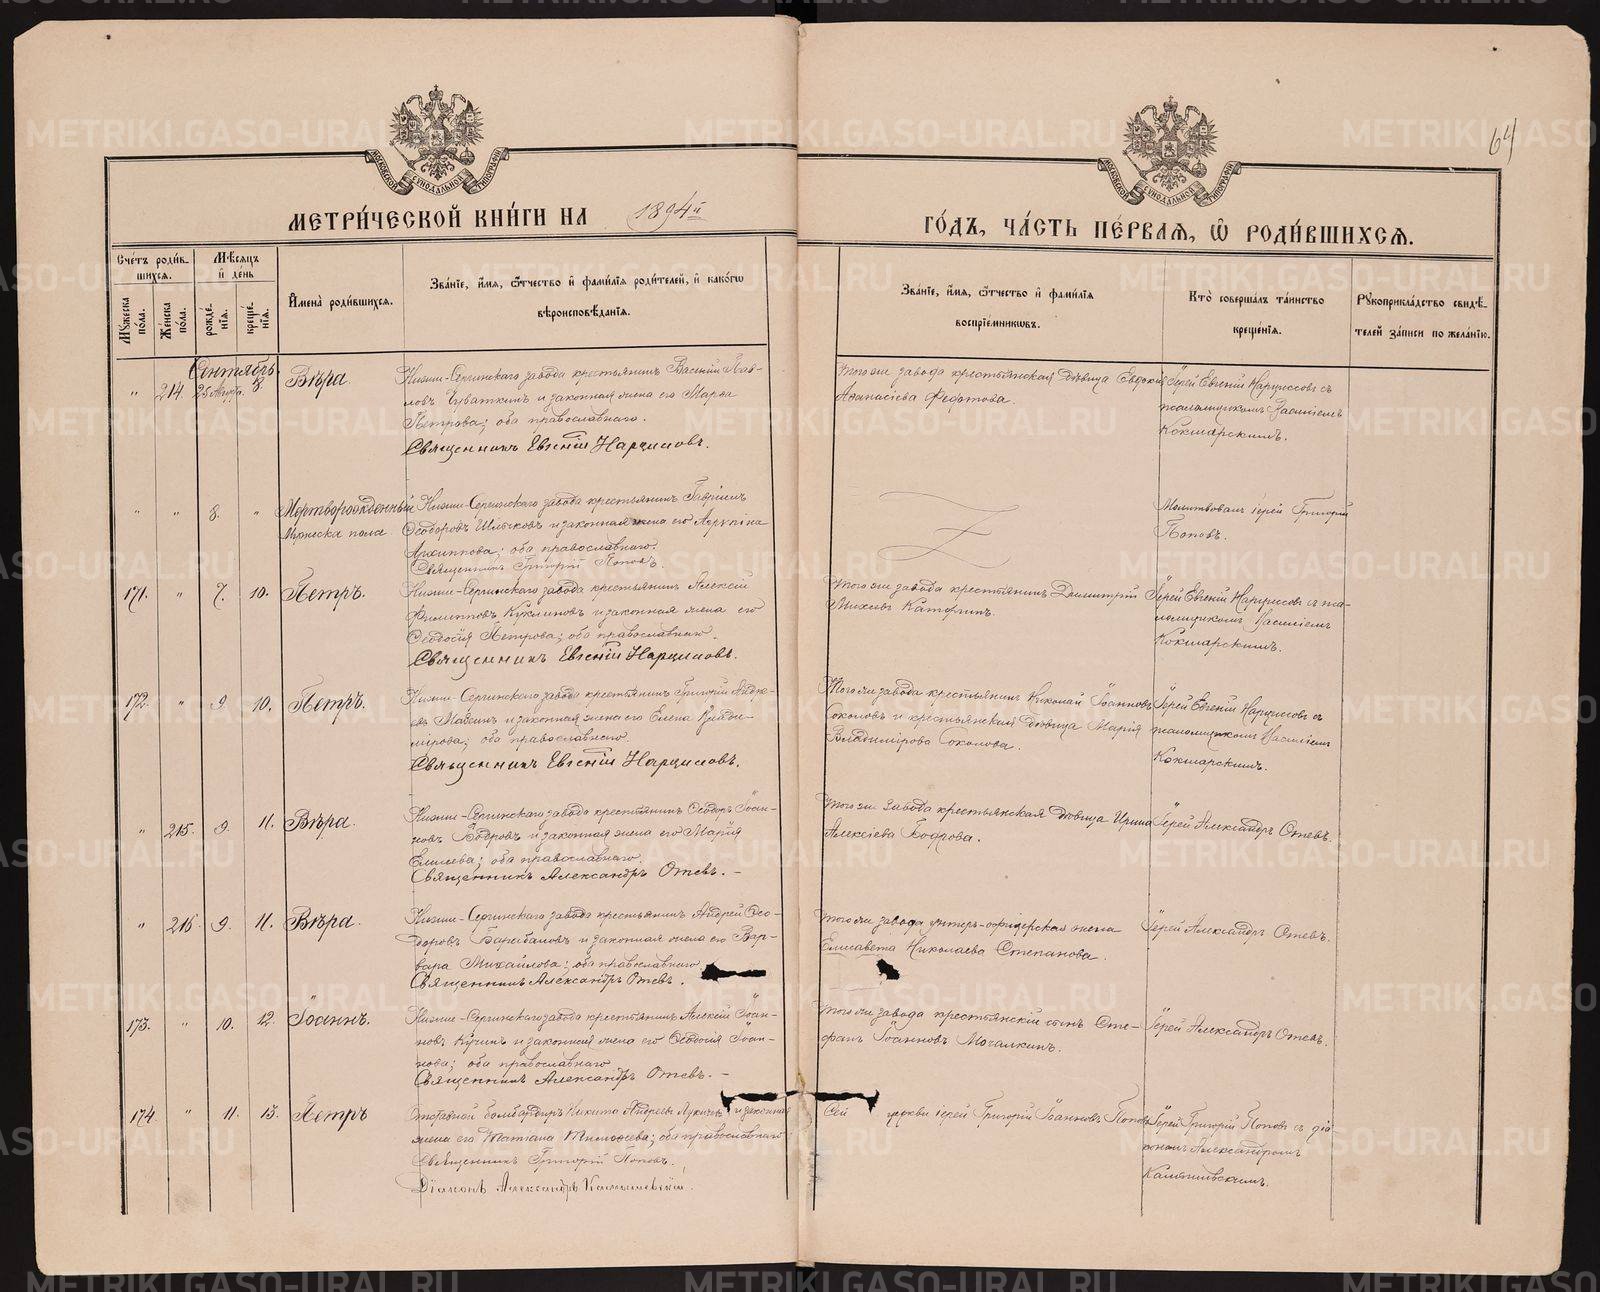 64
МОСКОВСКОЙ СѴНОДАЛЬНОЙ ТИПОГРАФІИ
МОСКОВСКОЙ СѴНОДАЛЬНОЙ ТИПОГРАФІИ
МЕТРИ́ЧЕСКОЙ КНИ́ГИ НА 1894й
ГО́ДЪ, ЧА́СТЬ ПЕ́РВАЯ, Ѽ РОДИ́ВШИХСЯ.
Счетъ роди́в-
шихся.
Мѣсяцъ
и҆ де́нь
Мꙋжеска
по́ла.
Же́нска
по́ла.
рожде́-
нїѧ.
креще́-
нїѧ.
И҆мена̀ роди́вшихся.
Зва́нїе, и҆́мѧ, ѻ҆́тчество и҆ фами́лїѧ роди́телей, и҆ како́гѡ
вѣроисповѣ́данїѧ.
Зва́нїе, и҆́мѧ, ѻ҆́тчество и҆ фами́лїѧ
воспрїе́мникѡвъ.
Кто̀ соверша́лъ та́инство
креще́нїѧ.
Рꙋкоприкла́дство свидѣ́-
телей за́писи по жела́нїю.
Сентябрь.
" 214. 25 Августа. 8. Вѣра
Нижне-Сергинскаго завода крестьянинъ Василій Пав-
ловъ и законная жена его Марѳа
Петрова; оба православнаго.
Священникъ Евгеній Нарциссовъ.
Того же завода крестьянская дѣвица Евдокія
Аѳанасіева Федотова.
Іерей Евгеній Нарциссовъ съ
псаломщикомъ Василіемъ
Кокшарскимъ.
" " 8. " Мертворожденный
Мужеска пола
Нижне-Сергинскаго завода крестьянинъ Гавріилъ
Ѳеодоровъ и законная жена его Агрипина
Архиппова; оба православнаго.
Священникъ Григорій Поповъ.
Молитвовалъ іерей Григорій
Поповъ.
171. " 7. 10. Петръ.
Нижне-Сергинскаго завода крестьянинъ Алексій
Филипповъ Куклиновъ и законная жена его
Ѳеодосія Петрова; оба православнаго.
Священникъ Евгеній Нарциссовъ.
Того же завода крестьянинъ Димитрій
Іерей Евгеній Нарциссовъ съ пса-
ломщикомъ Василіемъ
Кокшарскимъ.
172. " 9. 10. Петръ.
Нижне-Сергинскаго завода крестьянинъ Григорій Андре-
евъ и законная жена его Елена Влади-
мірова; оба православнаго.
Священникъ Евгеній Нарциссовъ.
Того же завода крестьянинъ Николай Іоанновъ
Соколовъ и крестьянская дѣвица Марія
Владимірова Соколова.
Іерей Евгеній Нарциссовъ съ
псаломщикомъ Василіемъ
Кокшарскимъ.
" 215. 9. 11. Вѣра.
Нижне-Сергинскаго завода крестьянинъ Ѳеодоръ Іоан-
новъ Бобровъ и законная жена его Марія
Елисеева; оба православнаго.
Священникъ Александръ Отевъ. -
Того же завода крестьянская дѣвица Ирина
Алексіева Боброва.
Іерей Александръ Отевъ.
" 216. 9. 11. Вѣра.
Нижне-Сергинскаго завода крестьянинъ Андрей Ѳео-
доровъ и законная жена его Вар-
вара Михайлова; оба православнаго.
Священникъ Александръ Отевъ.
Того же завода унтеръ-офицерская жена
Елисавета Николаева Степанова.
Іерей Александръ Отевъ.
173. " 10. 12. Іоаннъ.
Нижне-Сергинскаго завода крестьянинъ Алексій Іоан-
новъ Кучинъ и законная жена его Ѳеодосія Іоан-
нова; оба православнаго
Священникъ Александръ Отевъ. -
Того же завода крестьянскій сынъ Сте-
фанъ Іоанновъ Мочалкинъ.
Іерей Александръ Отевъ.
174. " 11. 13. Петръ
Отставной бомбардиръ Никита Андреевъ и законная
жена его Татіана Тимоѳеева; оба православнаго
Священникъ Григорій Поповъ.
Діаконъ Александръ Камышевскій.
Сей церкви іерей Григорій Іоанновъ Поповъ
Іерей Григорій Поповъ съ діа-
кономъ Александромъ
Камышевскимъ.
METRIKI.GASO-URAL.RU